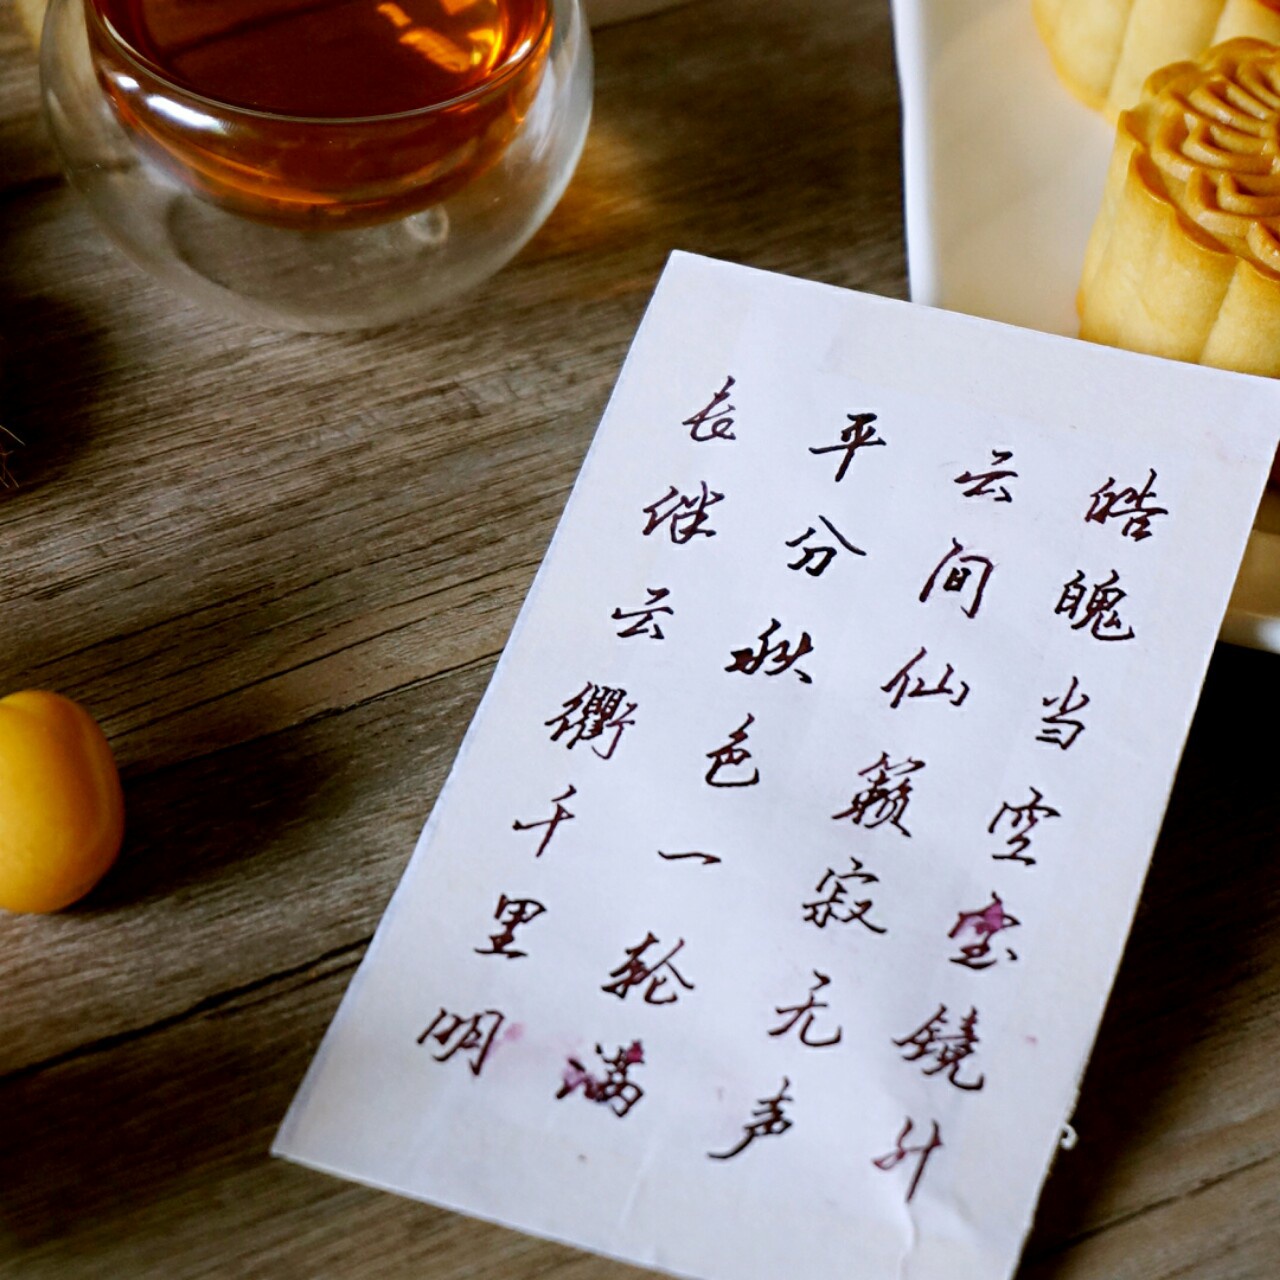 皓魄当空宝镜升
云间仙籁寂无声
平分秋色一轮满
长伴云衢千里明